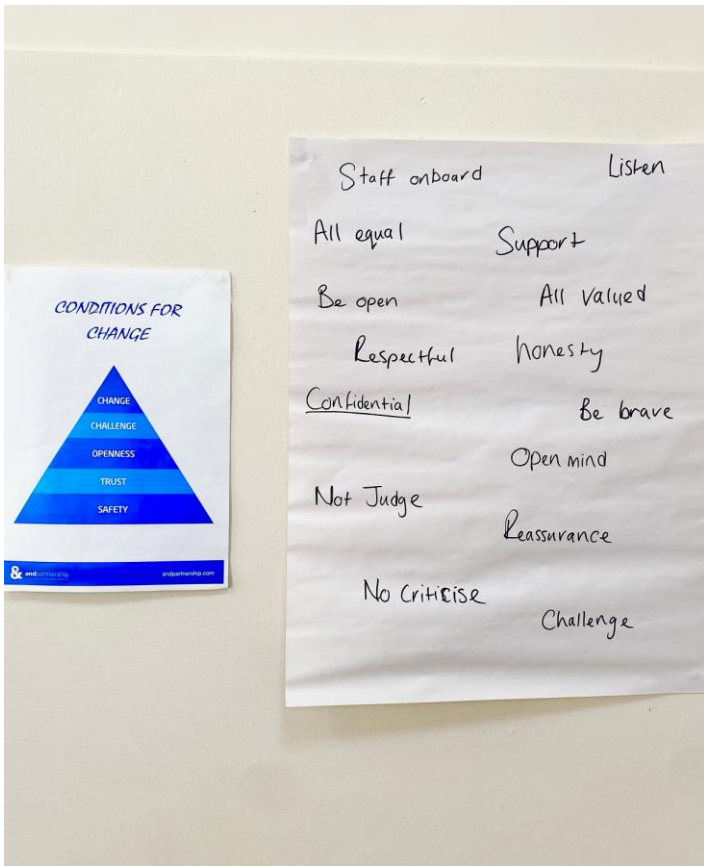 CONDITIONS FOR
CHANGE
CHANGE
CHALLENGE
OPENNESS
TRUST
SAFETY
& andpartnership
andpartnership.com
Staff onboard
Listen
All equal
Support
Be open
All valued
Respectful
honesty
Confidential
Be brave
Open mind
Not Judge
Reassurance
No Criticise
Challenge